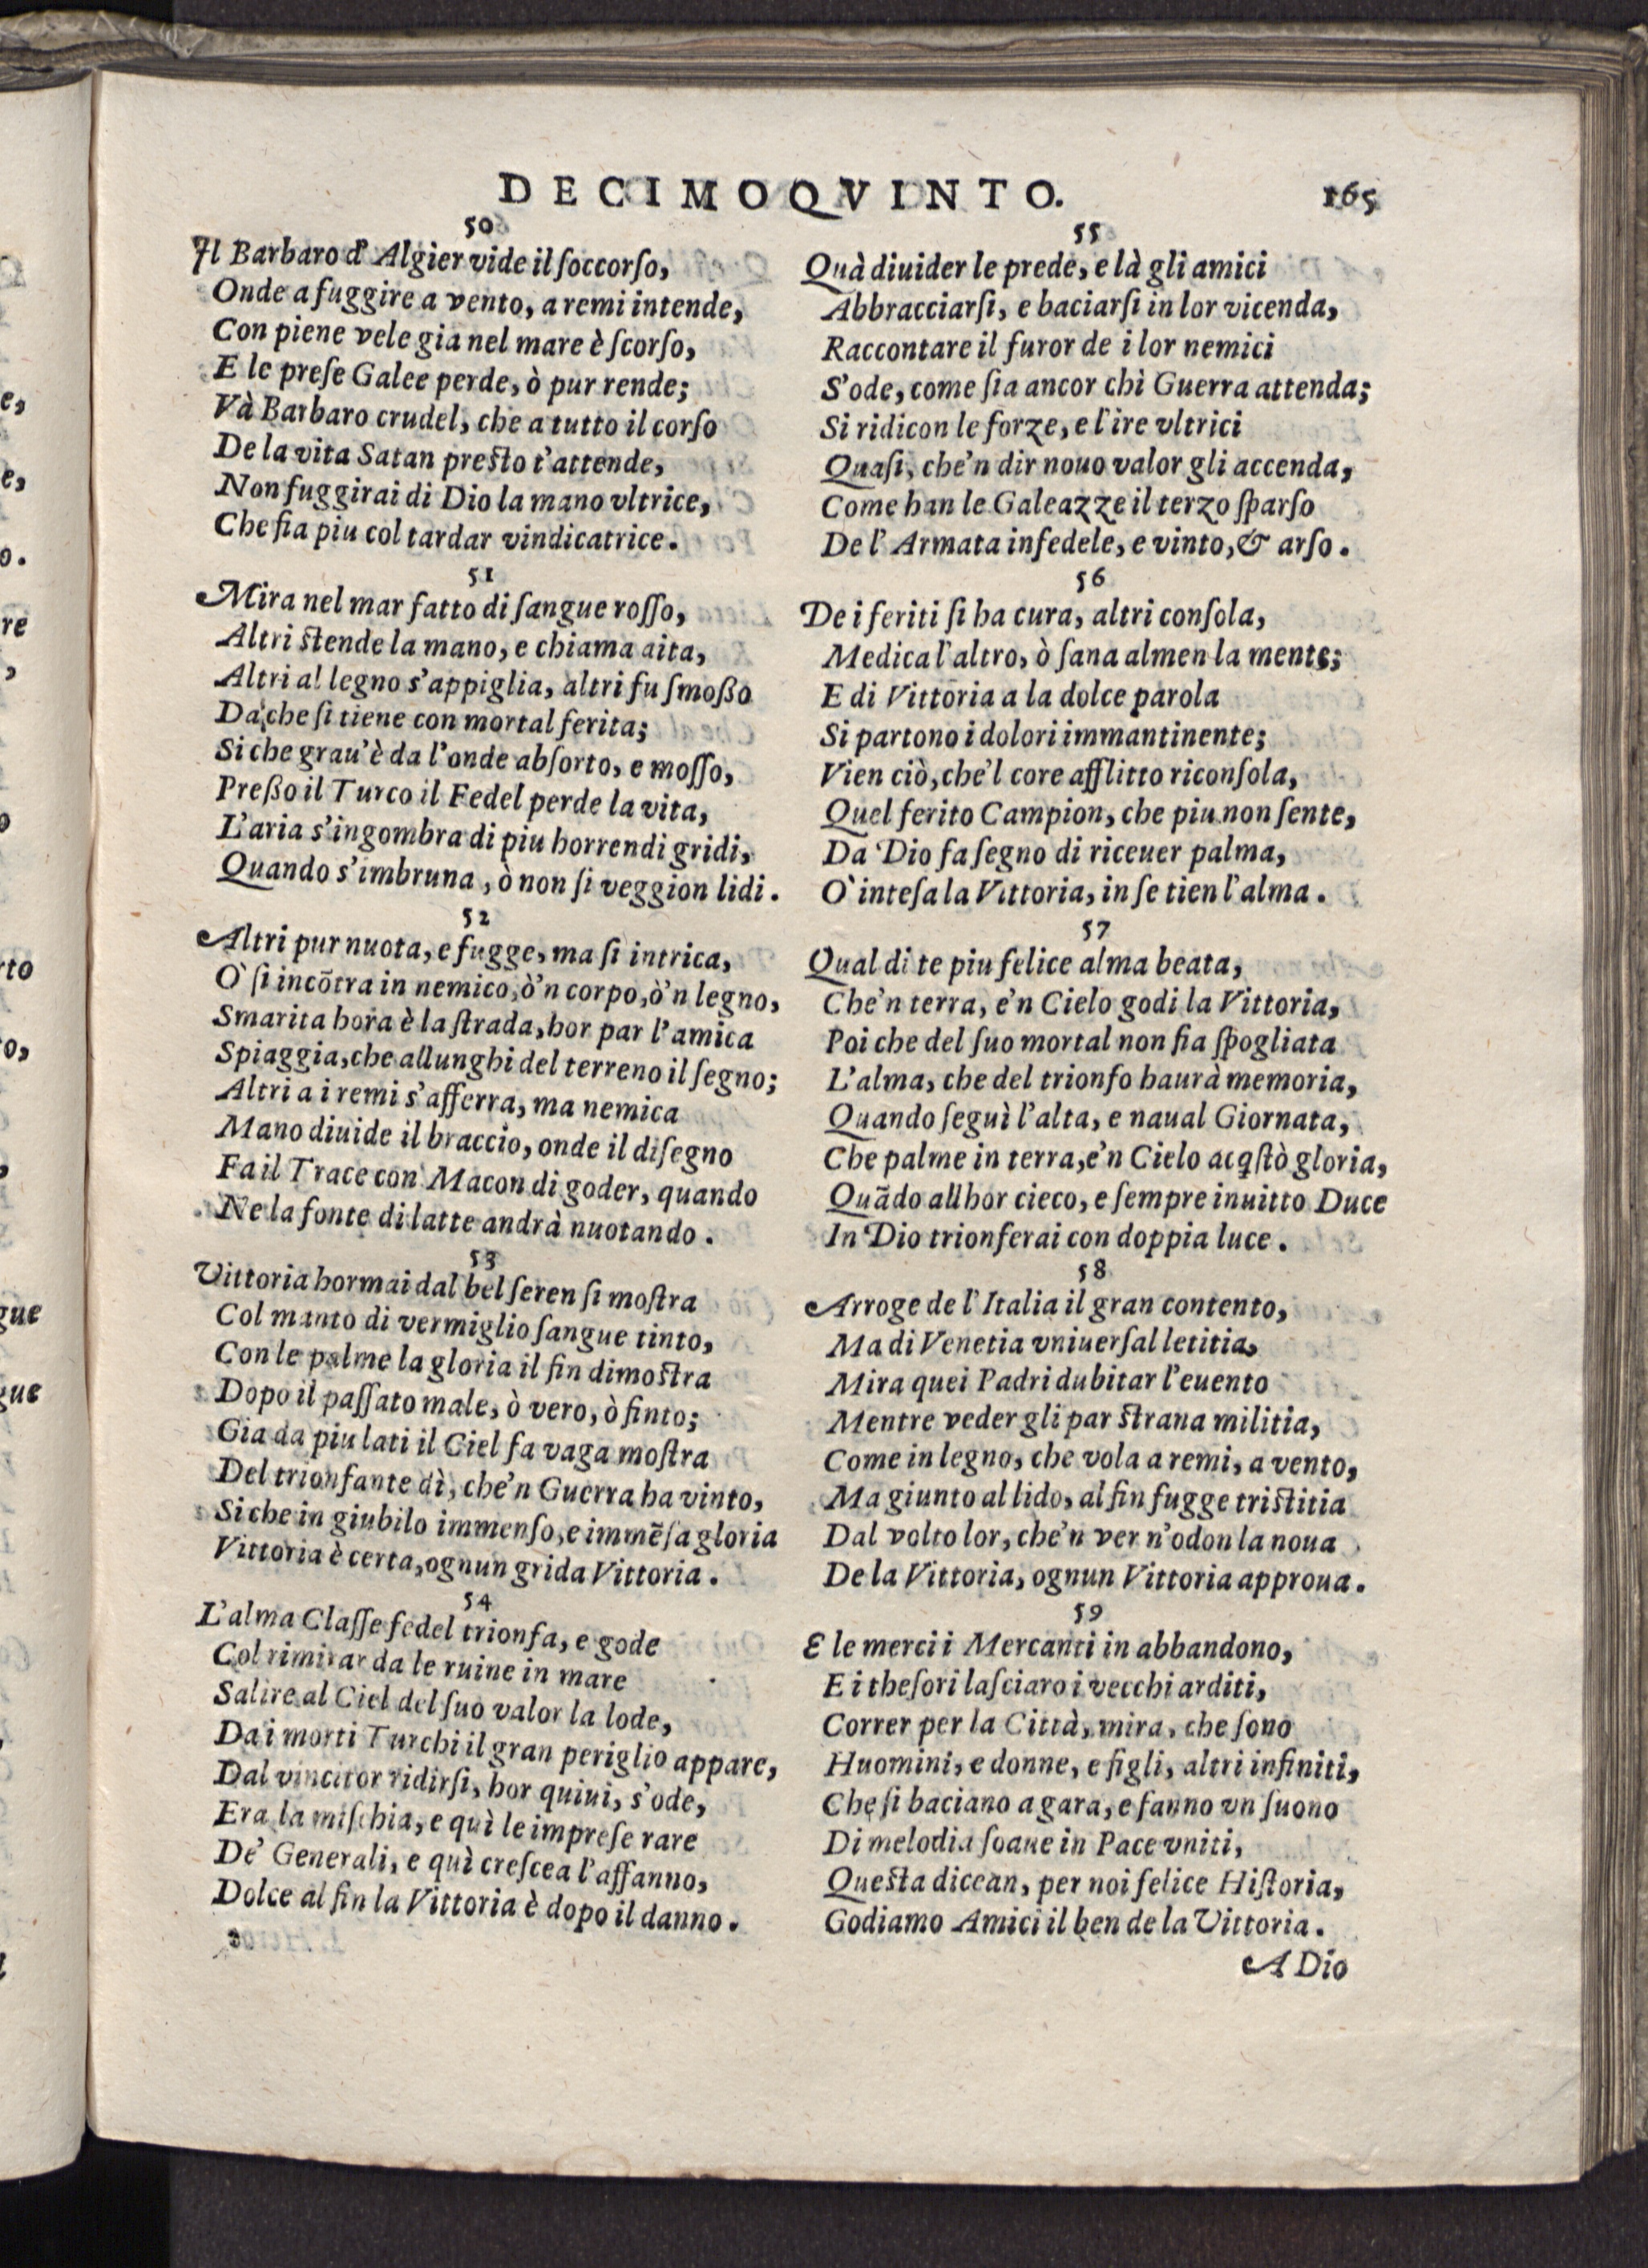 DECIMOQVINTO. 165
50
Il Barbaro d' Algier vide il ſoccorſo,
Onde a fuggire a vento, a remi intende,
Con piene vele gia nel mare è ſcorſo,
E le preſe Galee perde, ò pur rende;
Và Barbaro crudel, che a tutto il corſo
De la vita Satan preſto t'attende,
Non fuggirai di Dio la mano vltrice,
Che fia piu col tardar vindicatrice.
51
Mira nel mar fatto di ſangue roſſo,
Altri ſtende la mano, e chiama aita,
Altri al legno s'appiglia, altri fu ſmoßo
Da che ſi tiene con mortal ferita;
Si che grau'è da l'onde abſorto, e moſſo,
Preßo il Turco il Fedel perde la vita,
L'aria s'ingombra di piu horrendi gridi,
Quando s'imbruna, ò non ſi veggion lidi.
52
Altri pur nuota, e fugge, ma ſi intrica,
Ò ſi incõtra in nemico, ò'n corpo, ò'n legno,
Smarita hora è la ſtrada, hor par l'amica
Spiaggia, che allunghi del terreno il ſegno;
Altri a i remi s'afferra, ma nemica
Mano diuide il braccio, onde il diſegno
Fa il Trace con Macon di goder, quando
Ne la fonte di latte andrà nuotando.
53
Vittoria hormai dal bel ſeren ſi moſtra
Col manto di vermiglio ſangue tinto,
Con le palme la gloria il fin dimoſtra
Dopo il paſſato male, ò vero, ò finto;
Gia da piu lati il Ciel fa vaga moſtra
Del trionfante dì, che'n Guerra ha vinto,
Si che in giubilo immenſo, e immẽſa gloria
Vittoria è certa, ognun grida Vittoria.
54
L'alma Claſſe fedel trionfa, e gode
Col rimirar da le ruine in mare
Salire al Ciel del ſuo valor la lode,
Da i morti Turchi il gran periglio appare,
Dal vincitor ridirſi, hor quiui, s'ode,
Era la miſchia, e quì le impreſe rare
De' Generali, e quì creſcea l'affanno,
Dolce al fin la Vittoria è dopo il danno.
55
Quà diuider le prede, e là gli amici
Abbracciarſi, e baciarſi in lor vicenda,
Raccontare il furor de i lor nemici
S'ode, come ſia ancor chì Guerra attenda;
Si ridicon le forze, e l'ire vltrici
Quaſi, che'n dir nouo valor gli accenda,
Come han le Galeazze il terzo ſparſo
De l' Armata infedele, e vinto, & arſo.
56
De i feriti ſi ha cura, altri conſola,
Medica l'altro, ò ſana almen la mente;
E di Vittoria a la dolce parola
Si partono i dolori immantinente;
Vien ciò, che'l core afflitto riconſola,
Quel ferito Campion, che piu non ſente,
Da Dio fa ſegno di riceuer palma,
O' inteſa la Vittoria, in ſe tien l'alma.
57
Qual di te piu felice alma beata,
Che'n terra, e'n Cielo godi la Vittoria,
Poi che del ſuo mortal non fia ſpogliata
L'alma, che del trionfo haurà memoria,
Quando ſeguì l'alta, e naual Giornata,
Che palme in terra, e'n Cielo acqſtò gloria,
Quãdo allhor cieco, e ſempre inuitto Duce
In Dio trionferai con doppia luce.
58
Arroge de l'Italia il gran contento,
Ma di Venetia vniuerſal letitia,
Mira quei Padri dubitar l'euento
Mentre veder gli par ſtrana militia,
Come in legno, che vola a remi, a vento,
Ma giunto al lido, al fin fugge triſtitia
Dal volto lor, che'n ver n'odon la noua
De la Vittoria, ognun Vittoria approua.
59
E le merci i Mercanti in abbandono,
E i theſori laſciaro i vecchi arditi,
Correr per la Città, mira, che ſono
Huomini, e donne, e figli, altri infiniti,
Che ſi baciano a gara, e fanno vn ſuono
Di melodia ſoaue in Pace vniti,
Queſta dicean, per noi felice Hiſtoria,
Godiamo Amici il ben de la Vittoria.
A Dio